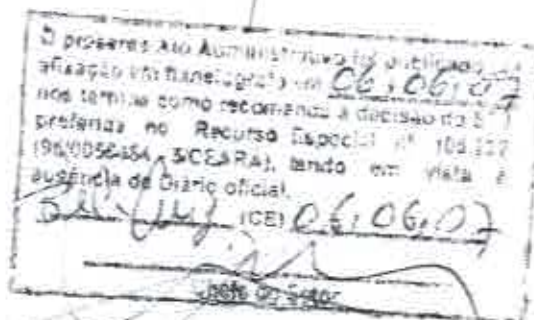 O presente Ato Administrativo foi publicado
afixação em flanelografo em 06, 06, 07
nos termos como recomenda a decisão do
proferida no Recurso Especial nº 105.232
(96/0056484, 5/CEARA), tendo em vista a
ausência de Diário oficial.
(CE) 06, 06, 07
Chefe do Setor